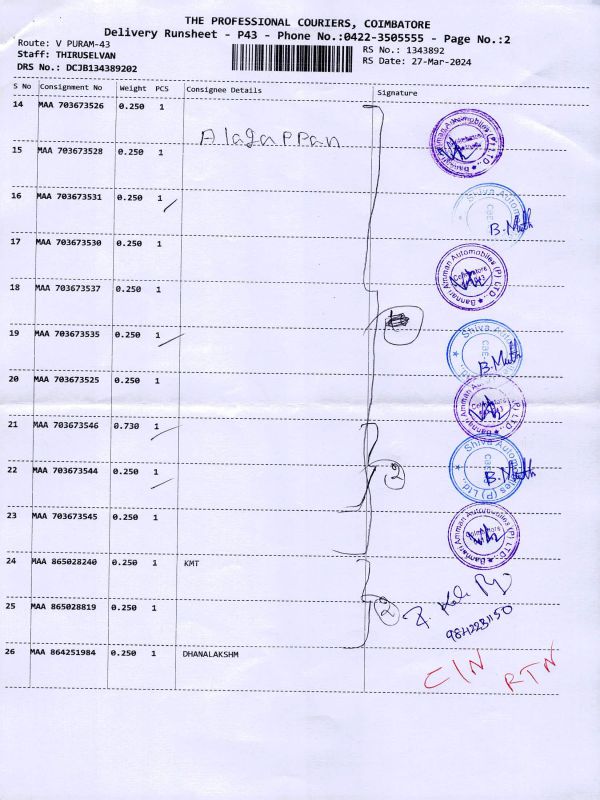 THE PROFESSIONAL COURIERS, COIMBATORE
Delivery Runsheet - P43 - Phone No.:0422-3505555 - Page No.:2
Route: V PURAM-43
RS No.: 1343892
Staff: THIRUSELVAN
RS Date: 27-Mar-2024
DRS No.: DCJB134389202
S No Consignment No Weight PCS Consignee Details Signature
14 MAA 703673526 0.250 1
Alagappan
15 MAA 703673528 0.250 1
Bannari Amman Automobiles (P) LTD.,
16 MAA 703673531 0.250 1
Shiva Automobiles
CBE
B. Muth
17 MAA 703673530 0.250 1
Bannari Amman Automobiles (P) LTD.,
Coimbatore
18 MAA 703673537 0.250 1
19 MAA 703673535 0.250 1
Shiva
CBE
B. Muth
20 MAA 703673525 0.250 1
Bannari Amman Automobiles (P) LTD.,
21 MAA 703673546 0.730 1
22 MAA 703673544 0.250 1
2
Shiva Automobiles (P) Ltd.
CBE
B. Muth
23 MAA 703673545 0.250 1
Bannari Amman Automobiles (P) LTD.,
24 MAA 865028240 0.250 1 KMT
25 MAA 865028819 0.250 1
2
26 MAA 864251984 0.250 1 DHANALAKSHM
C/N RTN